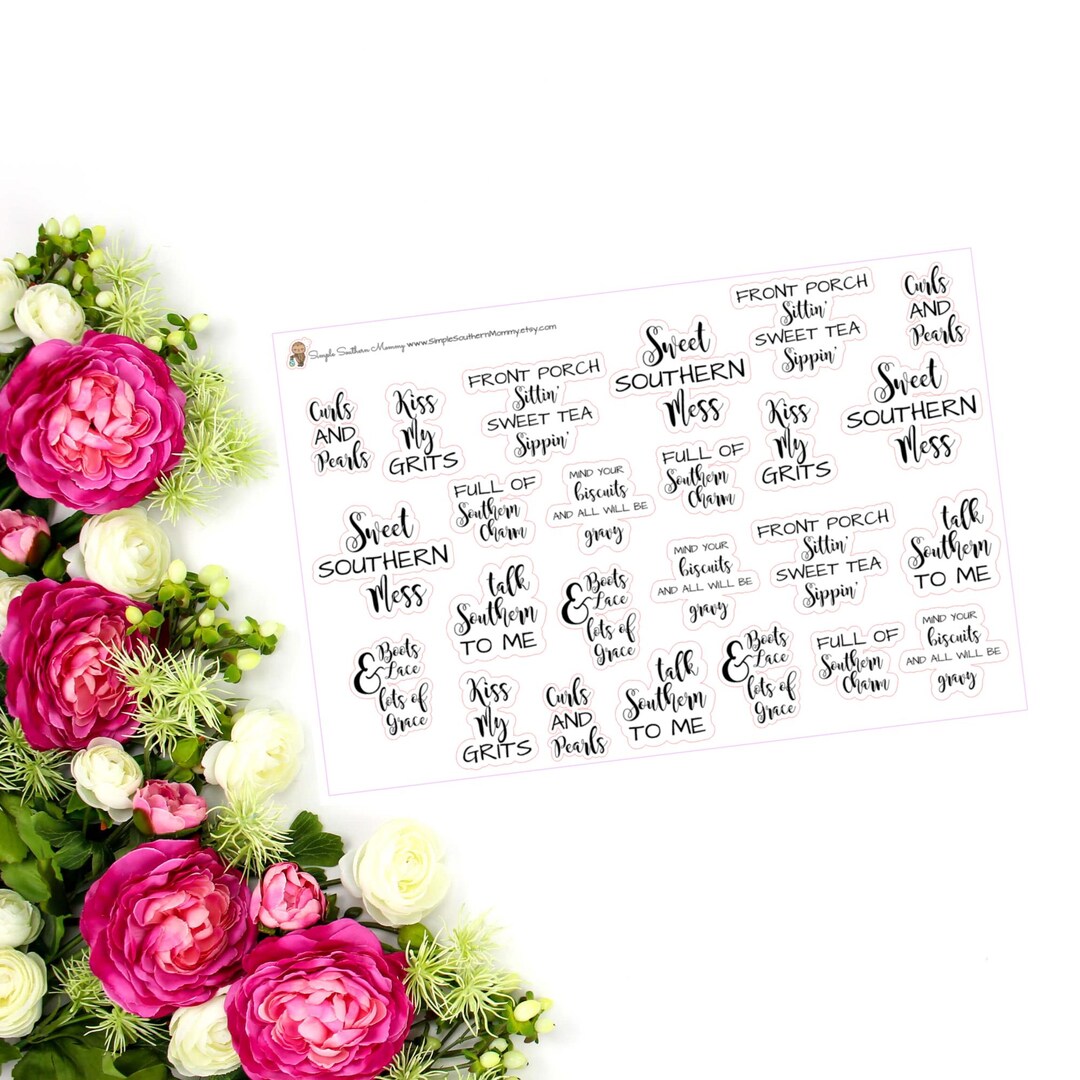 Simple Southern Mommy www.SimpleSouthernMommy.etsy.com
Curls
AND
Pearls
Kiss
My
GRITS
FRONT PORCH
Sittin'
SWEET TEA
Sippin'
Sweet
SOUTHERN
Mess
FRONT PORCH
Sittin'
SWEET TEA
Sippin'
Curls
AND
Pearls
Kiss
My
GRITS
Sweet
SOUTHERN
Mess
Sweet
SOUTHERN
Mess
FULL OF
Southern
Charm
MIND YOUR
biscuits
AND ALL WILL BE
gravy
FULL OF
Southern
Charm
talk
Southern
TO ME
& Boots
Lace
lots of
Grace
MIND YOUR
biscuits
AND ALL WILL BE
gravy
FRONT PORCH
Sittin'
SWEET TEA
Sippin'
talk
Southern
TO ME
& Boots
Lace
lots of
Grace
Kiss
My
GRITS
Curls
AND
Pearls
talk
Southern
TO ME
& Boots
Lace
lots of
Grace
FULL OF
Southern
Charm
MIND YOUR
biscuits
AND ALL WILL BE
gravy